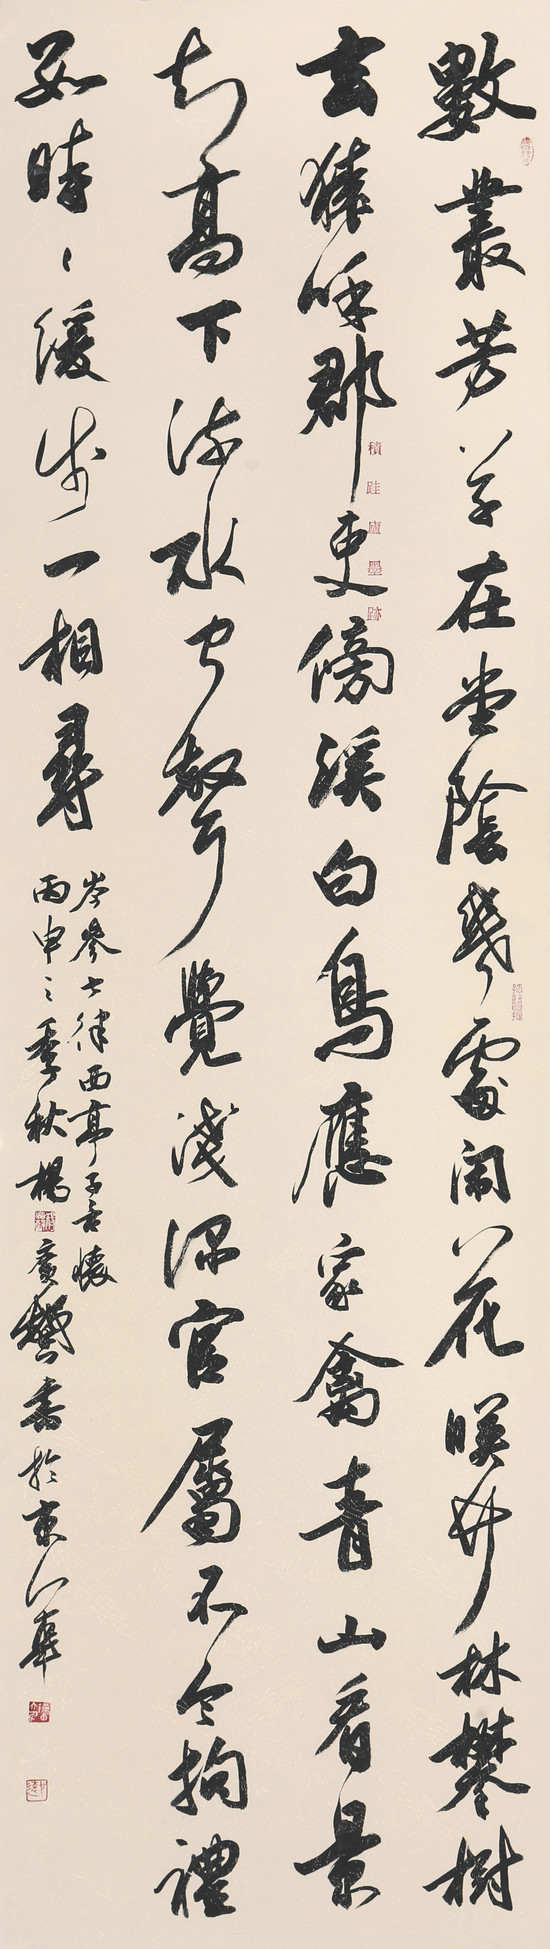 數叢芳草在堂陰幾處閑花映竹林攀樹
玄猿呼郡吏傍溪白鳥應家禽青山看景
知高下流水聞聲覺淺深官屬不令拘禮
數時〻緩步一相尋
岑參七律西亭子言懷
丙申之季秋楊廣馨書於京華
積跬廬墨跡